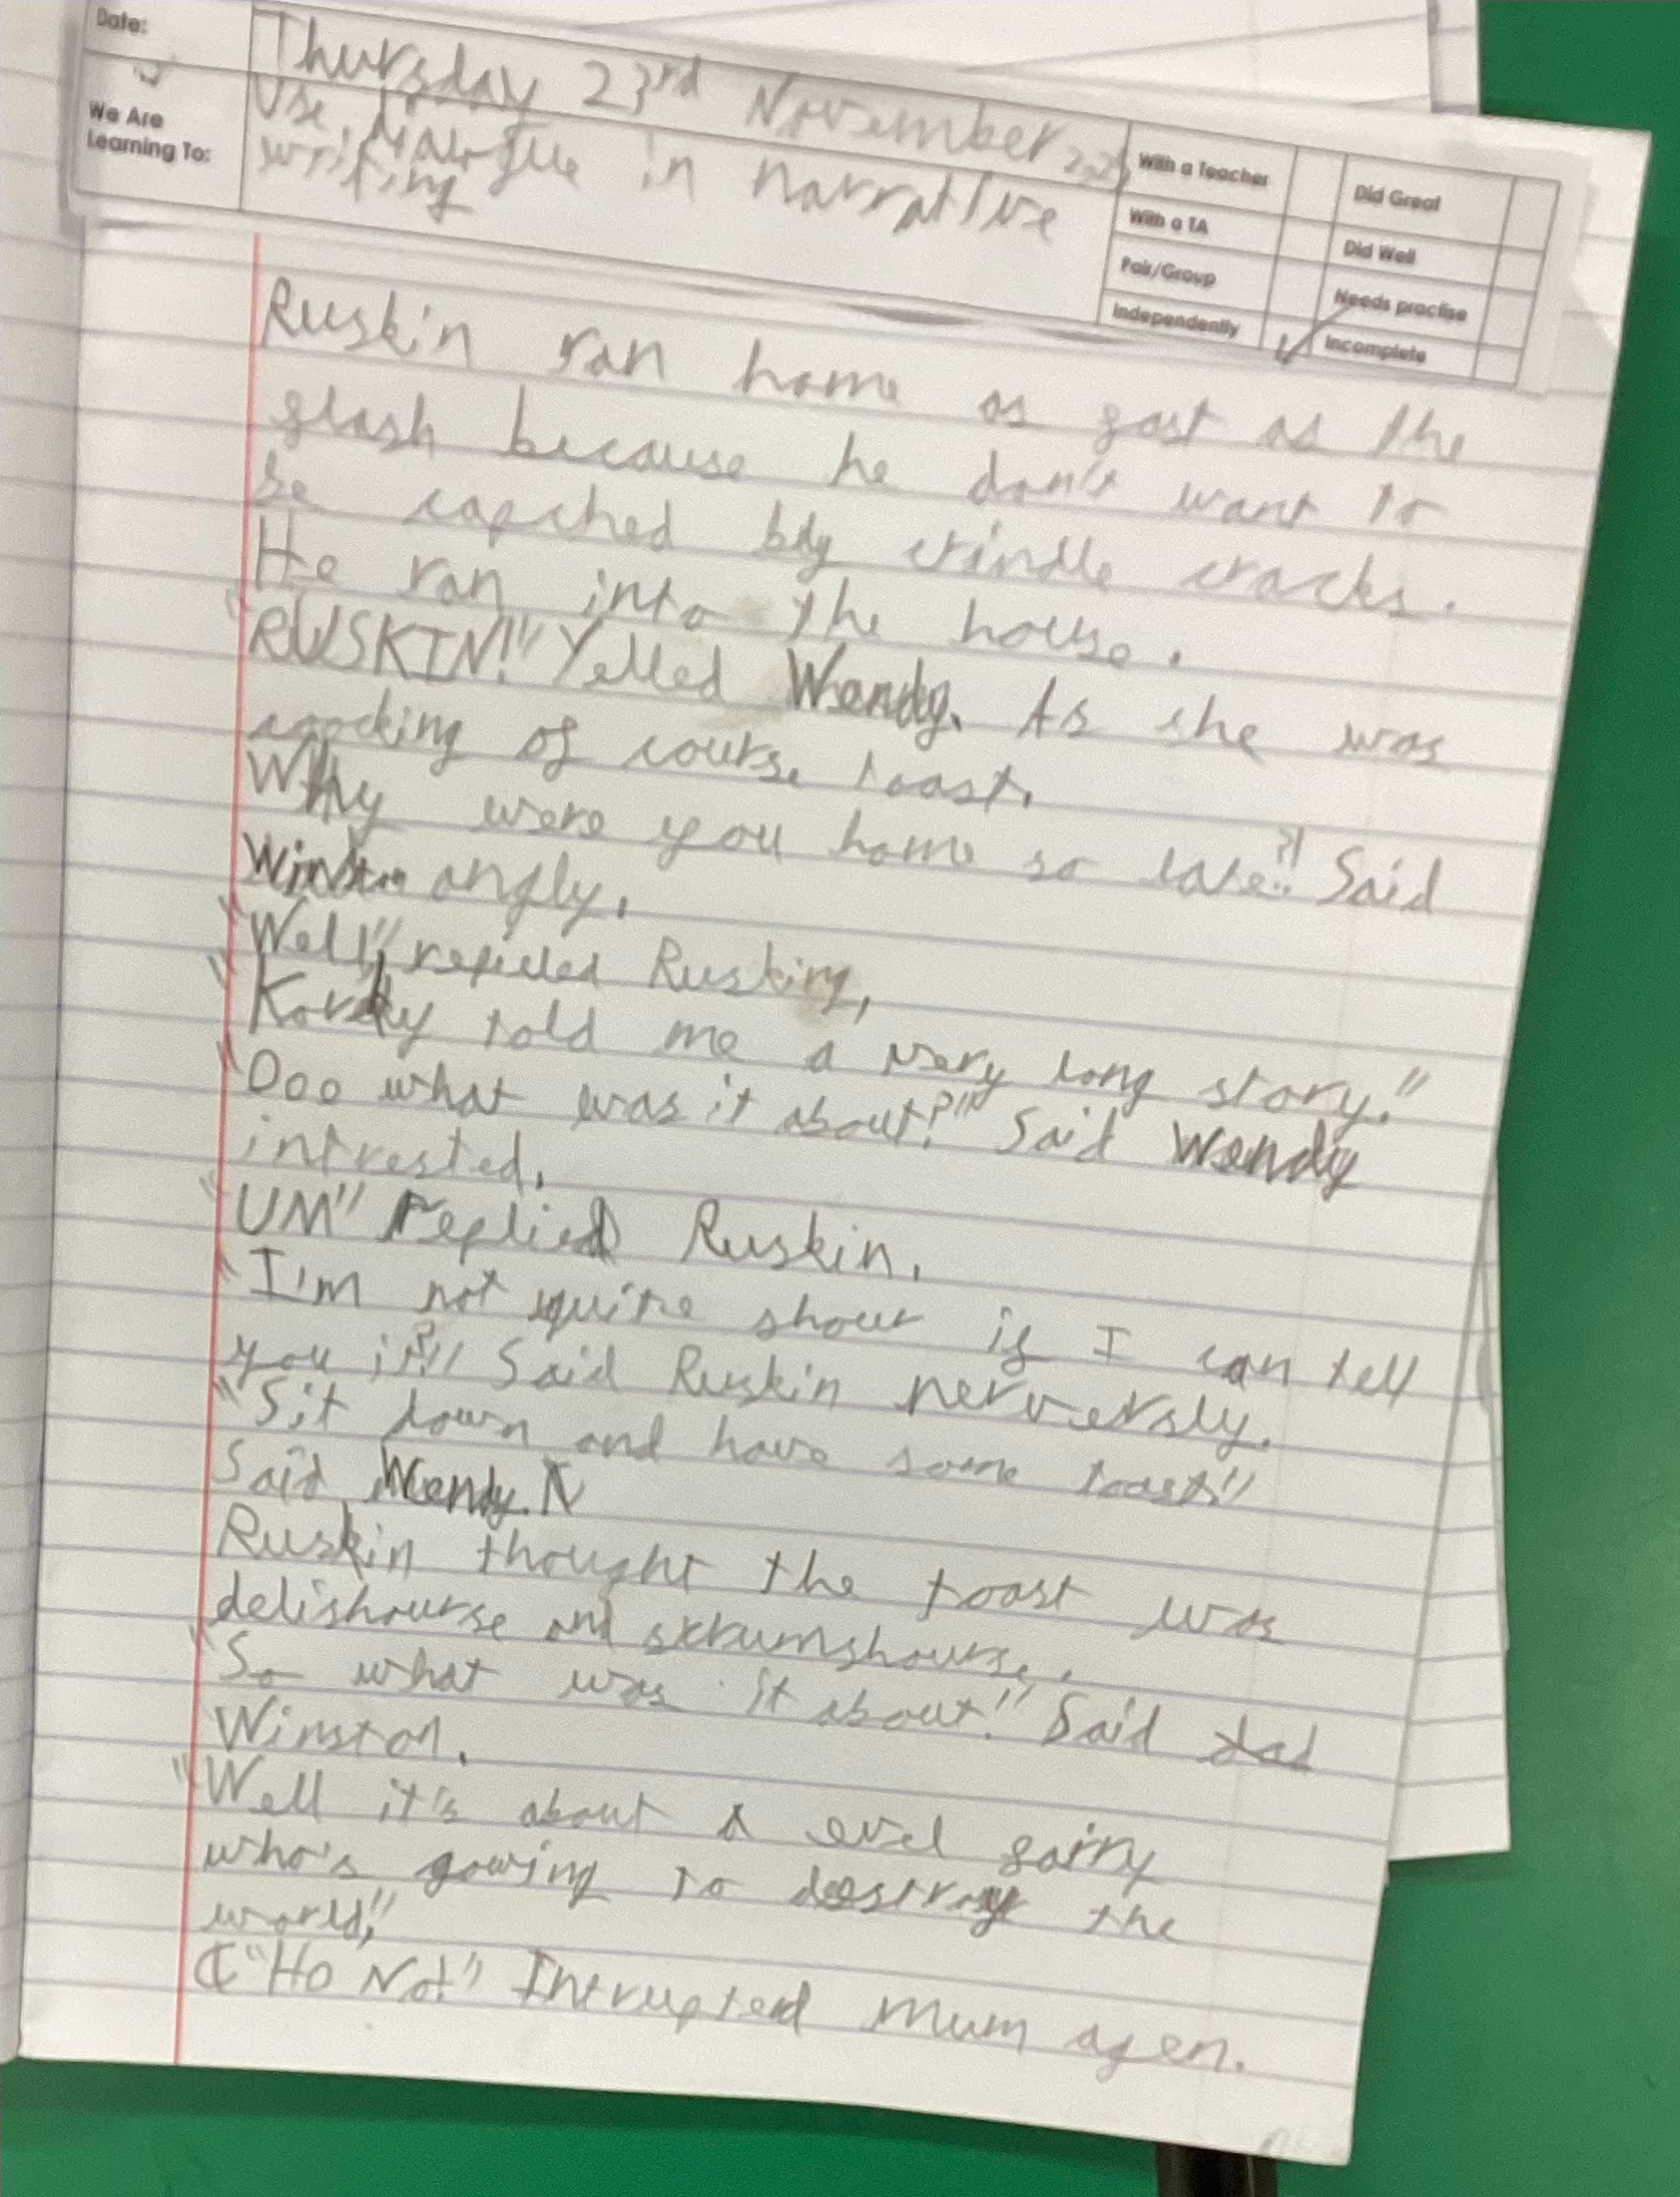 Date:
Thursday 23rd November
We Are
Learning To:
Use dialogue in narrative
writing
With a Teacher
Did Great
With a TA
Did Well
Pair/Group
Needs practise
Independently
Incomplete
Ruskin ran home as fast as the
flash because he don't want to
be capched by crindle cracks.
He ran into the house.
"RUSKIN!" Yelled Wendy. As she was
coocking of course toast.
Why were you home so late?!" Said
Winston angly.
"Well", repiled Rusking,
"Korky told me a very long story."
"Ooo what was it about?" Said Wendy
intrested.
"UM" replied Ruskin.
"I'm not quite shour if I can tell
you it?!" Said Ruskin nerversly.
"Sit down and have some toast!"
Said Wendy.
Ruskin thought the toast was
delishourse and skrumshourse.
"So what was it about!" Said dad
Winston.
"Well it's about a evel gairy
who's gowing to destroy the
world,"
"Ho No!" Intrupted Mum agen.